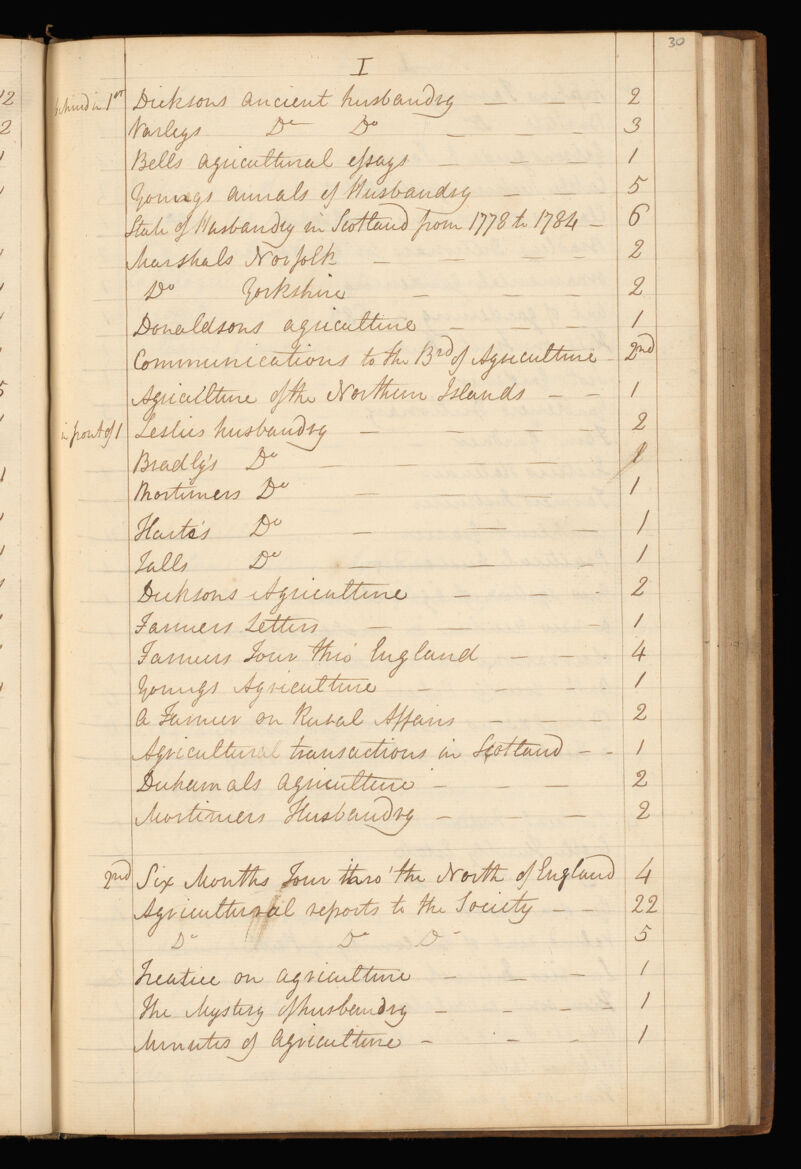 30
I
behind in 1st Dicksons ancient husbandry — — — 2
Varleys Do Do — — — 3
Bells agricultural essays — — — 1
Youngs annals of Husbandry — — 5
State of Husbandry in Scotland from 1778 to 1784 — 6
Marshals Norfolk — — — — 2
Do Yorkshire — — — 2
Donaldsons agriculture — — — 1
Communications to the Brd of Agriculture — 2nd
Agriculture of the Northern Islands — — 1
in front of 1 Leslies husbandry — — — — 2
Bradly's Do — — — 1
Mortimers Do — — — 1
Harte's Do — — 1
Falls Do — — — 1
Dicksons Agriculture — — — 2
Farmers Letters — — — 1
Farmers Tour thro' England — — — 4
Youngs Agriculture — — — — 1
A Farmer on Rural Affairs — — — 2
Agricultural transactions in Scotland — — 1
Duhamals agriculture — — — 2
Mortimers Husbandry — — — 2
2nd Six Months Tour thro' the North of England 4
Agricultural reports to the Society — — 22
Do Do Do 5
Treatice on agriculture — — — 1
The Mystery of husbandry — — — 1
Minutes of Agriculture — — — 1